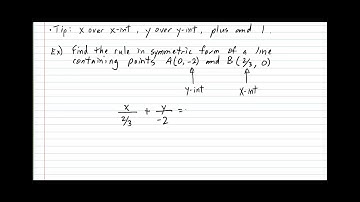 • Tip: x over x-int, y over y-int, plus and 1.
Ex) Find the rule in symmetric form of a line
containing points A(0,-2) and B(2/3, 0)
y-int x-int
x/(2/3) + y/-2 =